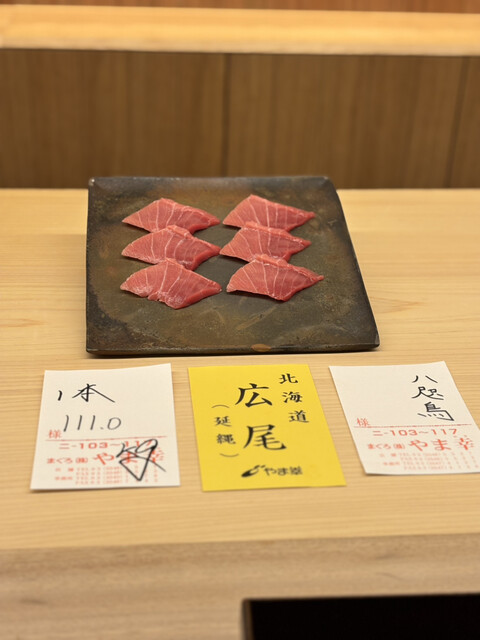 1本
111.0
様
ニ-103~117
まぐろ(株)やま幸
北海道
広尾
(延縄)
やま幸
八咫烏
様
ニ-103~117
まぐろ(株)やま幸